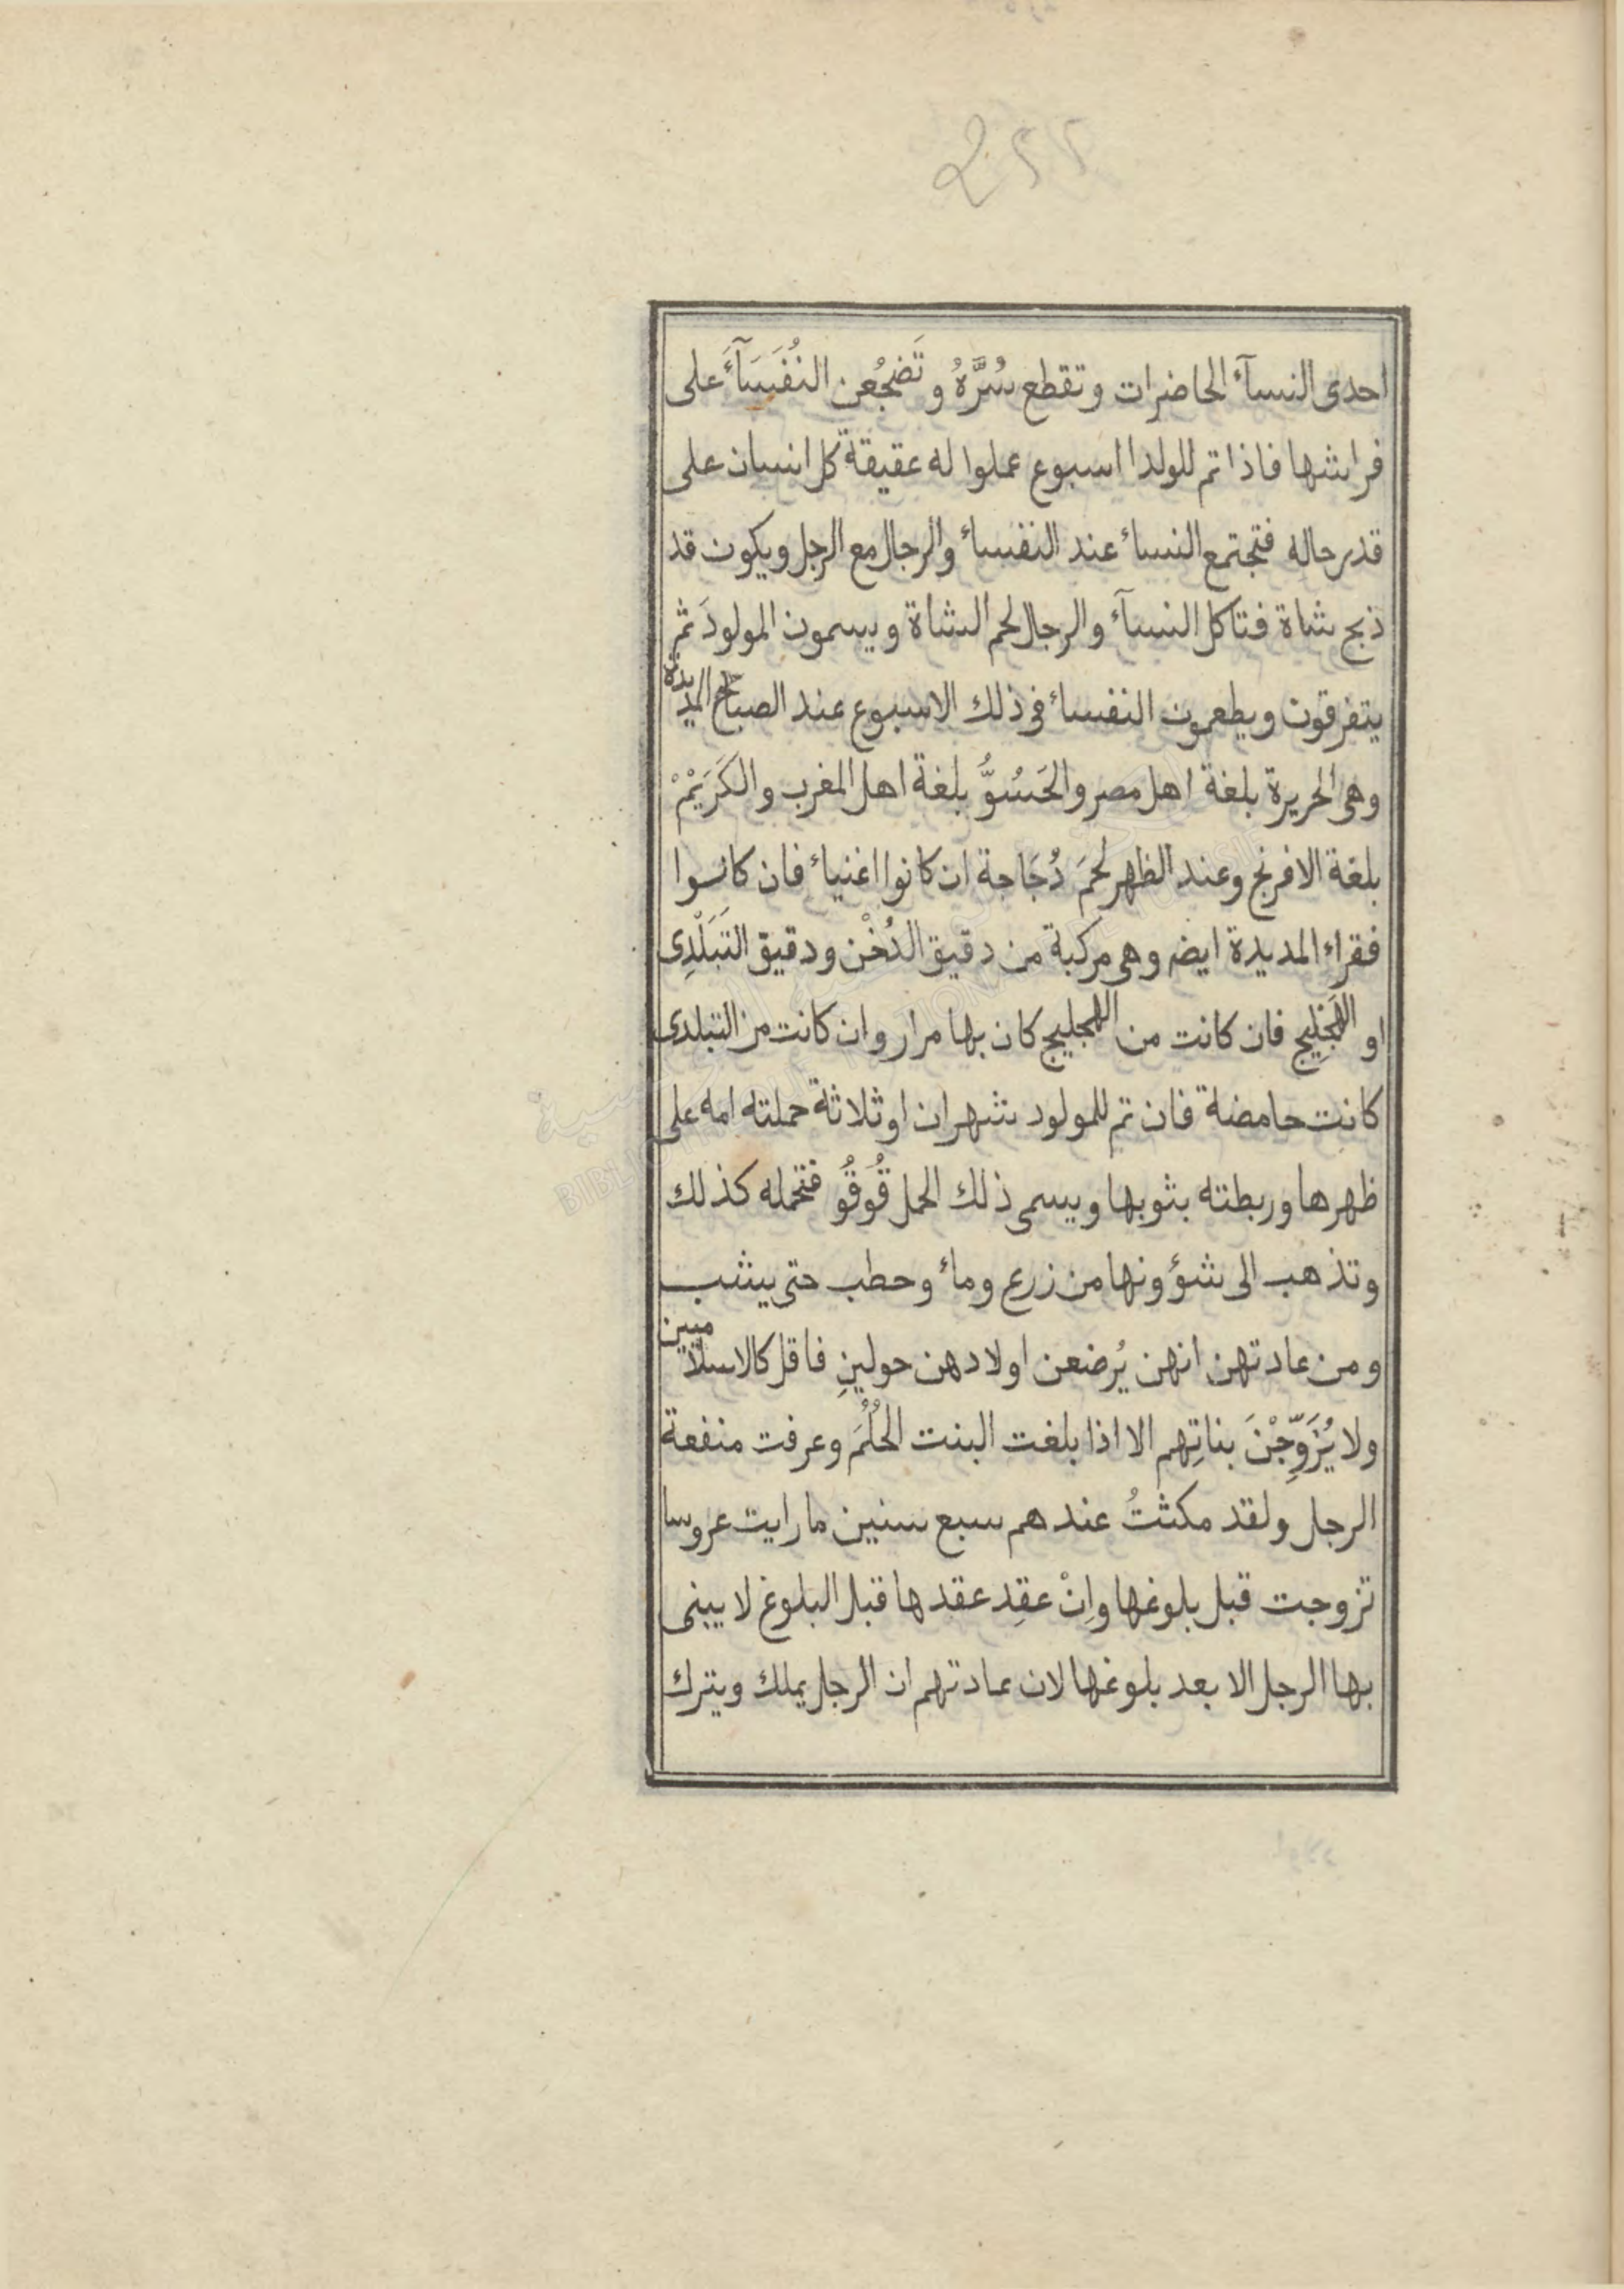 احدى النسآء الحاضرات وتقطع سُرَّهُ وتَضجُعن النُفَسَآءَ على
فراشها فاذا تم للولدا اسبوع عملوا له عقيقة كل انسان على
قدر حاله فتجتمع النساء عند النفساء والرجال مع الرجل ويكون قد
ذبح شاة فتاكل النسآء والرجال لحم الشاة ويسمون المولودَ ثم
يتفرقون ويطعمون النفساء فى ذلك الاسبوع عند الصباح المديدة
وهى الحريرة بلغة اهل مصر والحَسُوُّ بلغة اهل المغرب والكَرَيْمْ
بلغة الافرنج وعند الظهر لحمَ دُجَاجة ان كانوا اغنياء فان كانوا
فقراء المديدة ايضه وهى مركبة من دقيق الدُخْن ودقيق التَبَلْدِى
او الهَجْلِيج فان كانت من الهجليج كان بها مرار وان كانت من التبلدى
كانت حامضة فان تم للمولود شهران او ثلاثة حملته امه على
ظهرها وربطته بثوبها ويسمى ذلك الحمل قُوقُو فتحمله كذلك
وتذهب الى شؤونها من زرع وماء وحطب حتى يشب
ومن عادتهن انهن يُرضعن اولادهن حولينِ فاقل كالاسلاميين
ولا يُزَوِّجْنَ بناتِهم الا اذا بلغت البنت الحُلُمَ وعرفت منفعة
الرجل ولقد مكثتُ عندهم سبع سنين ما رايت عروسا
تزوجت قبل بلوغها وإنْ عقِد عقدها قبل البلوغ لا يبنى
بها الرجل الا بعد بلوغها لان عادتهم ان الرجل يملك ويترك